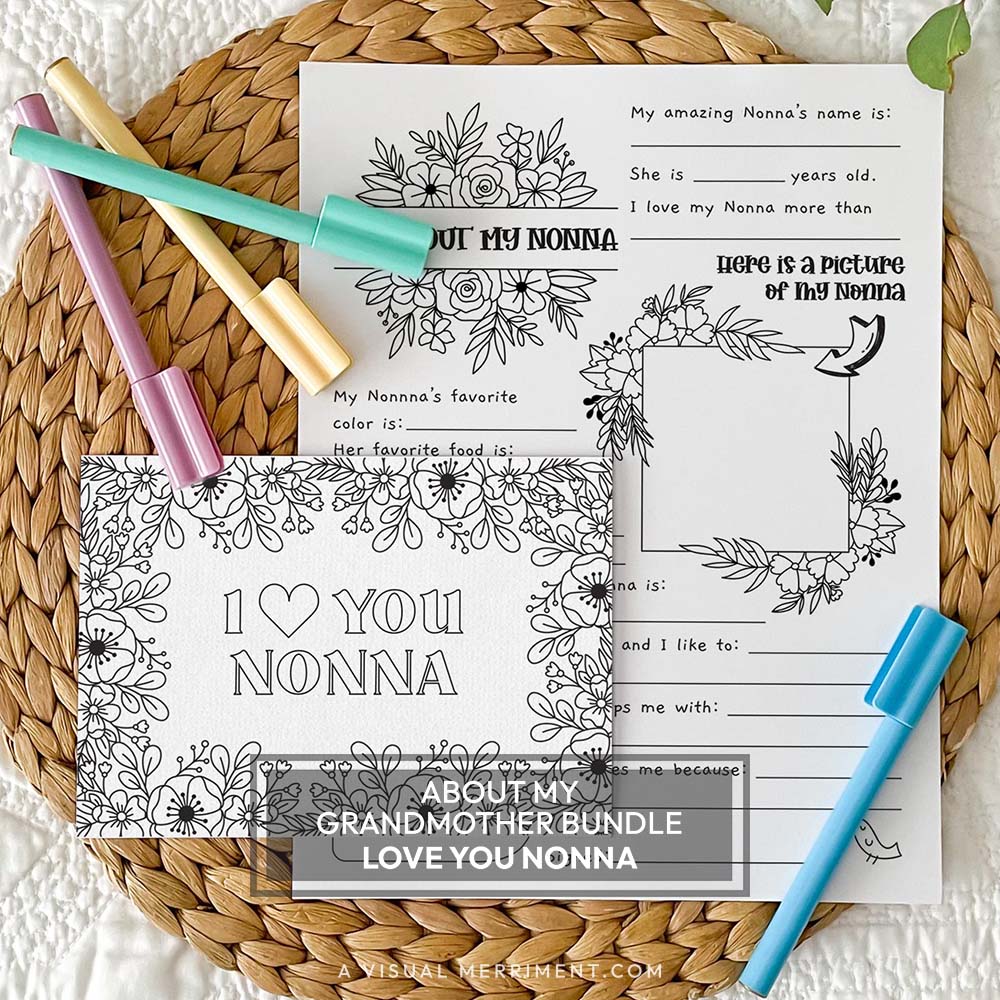 OUT MY NONNA
My Nonnna's favorite
color is:
Her favorite food is:
My amazing Nonna's name is:
She is ________ years old.
I love my Nonna more than
Here is a picture
of my Nonna
na is:
and I like to:
ps me with:
es me because:
I YOU
NONNA
ABOUT MY
GRANDMOTHER BUNDLE
LOVE YOU NONNA
A VISUAL MERRIMENT.COM